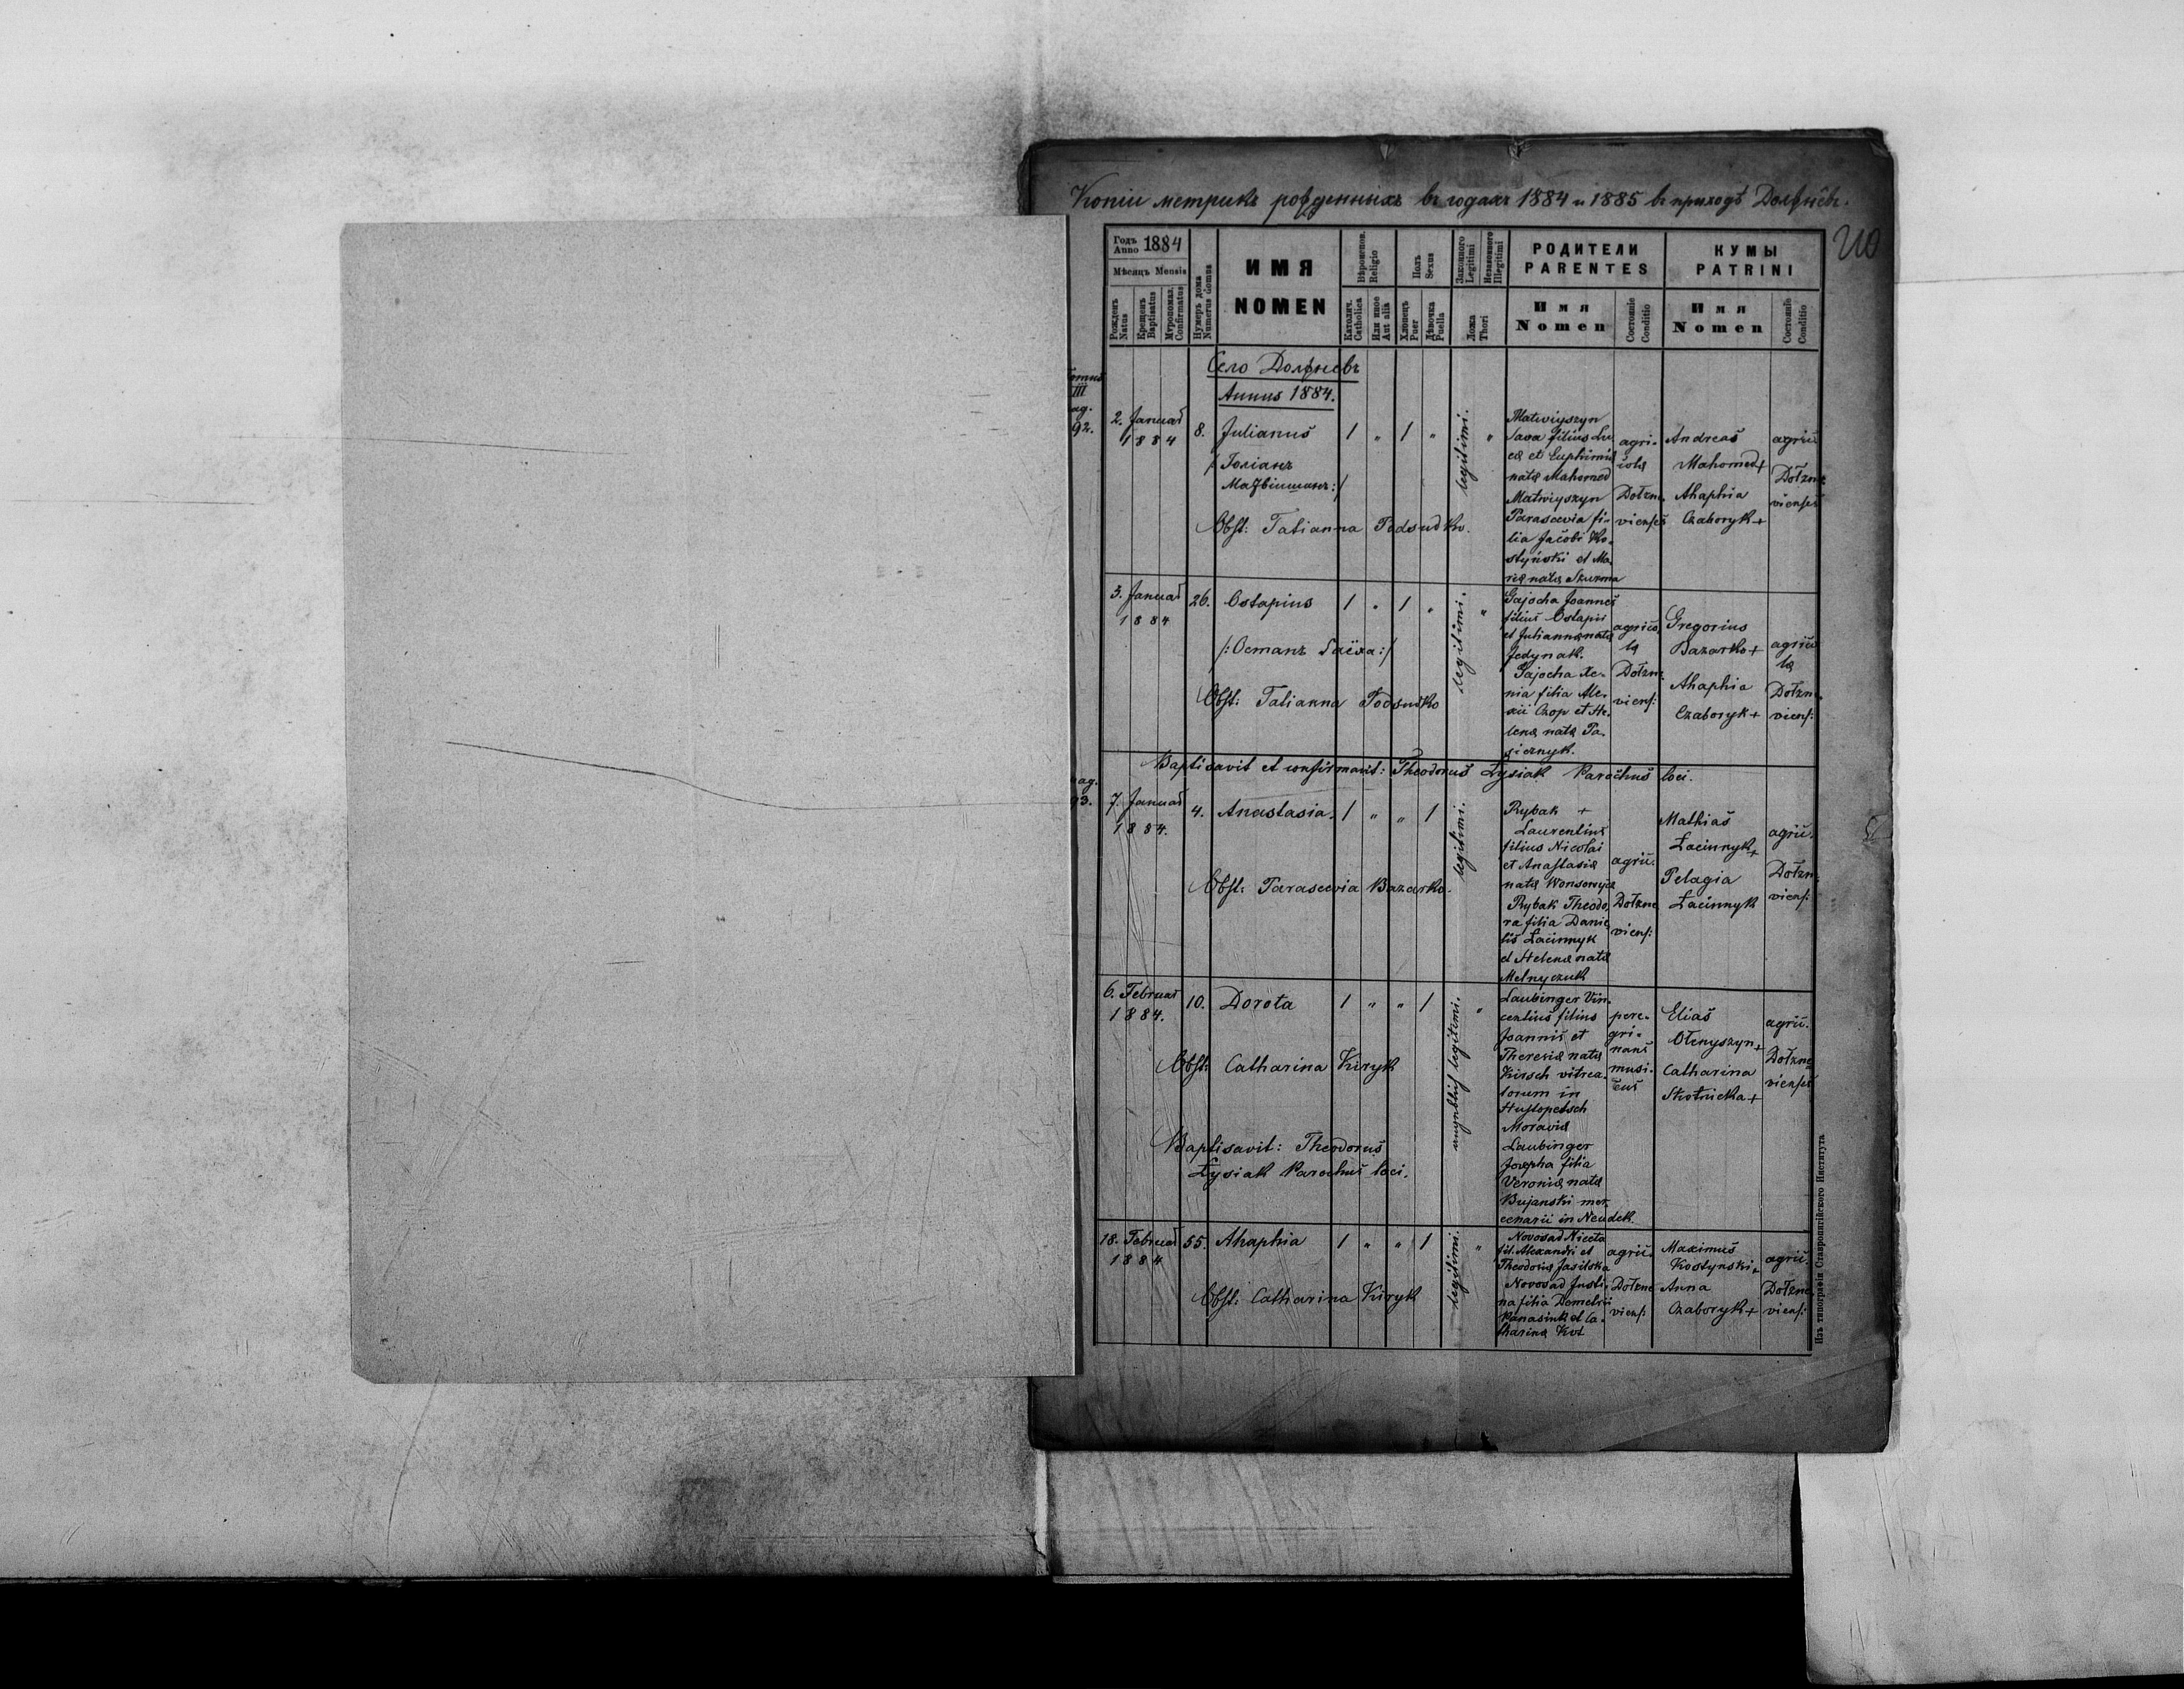 Копіи метрикъ рожденныхъ въ годахъ 1884 и 1885 въ приходѣ Должнѣвъ.
210
Годъ Anno 1884
Мѣсяцъ Mensis
Рожденъ Natus
Крещенъ Baptisatus
Мѵропомаз. Confirmatus
Нумеръ дома Numerus domus
ИМЯ
NOMEN
Вѣроисповѣд. Religio
Католич. Catholica
Или иное Aut alia
Полъ Sexus
Хлопецъ Puer
Дѣвочка Puella
Законного Legitimi
Незаконного Illegitimi
Ложа Thori
РОДИТЕЛИ
PARENTES
Имя
Nomen
Состояніе Conditio
КУМЫ
PATRINI
Имя
Nomen
Состояніе Conditio
Село Должневъ
Annus 1884.
Tomus
III
pag.
92.
2. Januar
1884
8.
Julianus
1 " 1 "
legitimi.
"
/Юліанъ
Матвіишинъ:/
Obst: Tatianna Podsudko.
Matwiyszyn
Sava filius Lu
cæ et Euphimiæ
natæ Mahomed
Matwiyszyn
Parascevia fi-
lia Jacobi Ko-
styński et Ma
riæ natæ Szurma
agri-
colæ
Dołzne
vienses
Andreas
Mahomed +
Ahaphia
Czaboryk +
agric
Dołzne
vienses
3. Januar
1884
26.
Ostapius
1 " 1 "
legitimi.
"
/:Остапъ Гаёха:/
Obst: Tatianna Podsudko
Gajocha Joannes
filius Ostapii
et Juliannæ natæ
Jedynak.
Gajocha Xe-
nia filia Ale-
xii Czop et He-
lenæ natæ Pa-
siecznyk.
agrico
læ
Dołzne
viens:
Gregorius
Bazarko +
Ahaphia
Czaboryk +
agrico
læ
Dołzne
viens:
Baptisavit et confirmavit: Theodorus Łysiak Parochus loci.
pag.
93.
7. Januar
1884.
4.
Anastasia.
1 " " 1
legitimi.
Obst: Parascevia Bazarko.
Rybak +
Laurentius
filius Nicolai
et Anastasiæ
natæ Wonsowycz
Rybak Theodo
ra filia Danie
lis Łacinnyk
et Helenæ natæ
Melnyczuk
agric.
Dołzne
viens:
Mathias
Łacinnyk +
Pelagia
Łacinnyk
agric.
Dołzne
viens:
6. Februar
1884.
10.
Dorota
1 " " 1
legitimi.
"
Obst: Catharina Kiryk
Baptisavit: Theodorus
Łysiak Parochus loci.
Laubinger Vin-
centius filius
Joannis et
Theresiæ natæ
Kirsch vitrea-
torum in
Hustopetsch
Moraviæ
Laubinger
Josepha filia
Veroniæ natæ
Bujanski mer
cenarii in Neudek.
pere-
gri-
nans
musi-
cus
Elias
Ołenyszyn +
Catharina
Skotnicka +
agric.
Dołzne
vienses
18. Februar
1884
55.
Ahaphia
1 " " 1
legitimi.
"
Obst: Catharina Kiryk
Novosad Niceta
fil. Alexandri et
Theodoræ Jasilska
Novosad Justi-
na filia Demetrii
Panasiuk et Ca-
tharinæ Kot
agric.
Dołzne
viens:
Maximus
Kostynski +
Anna
Czaboryk +
agric.
Dołzne
viens:
Изъ типографіи Ставропигійского Института